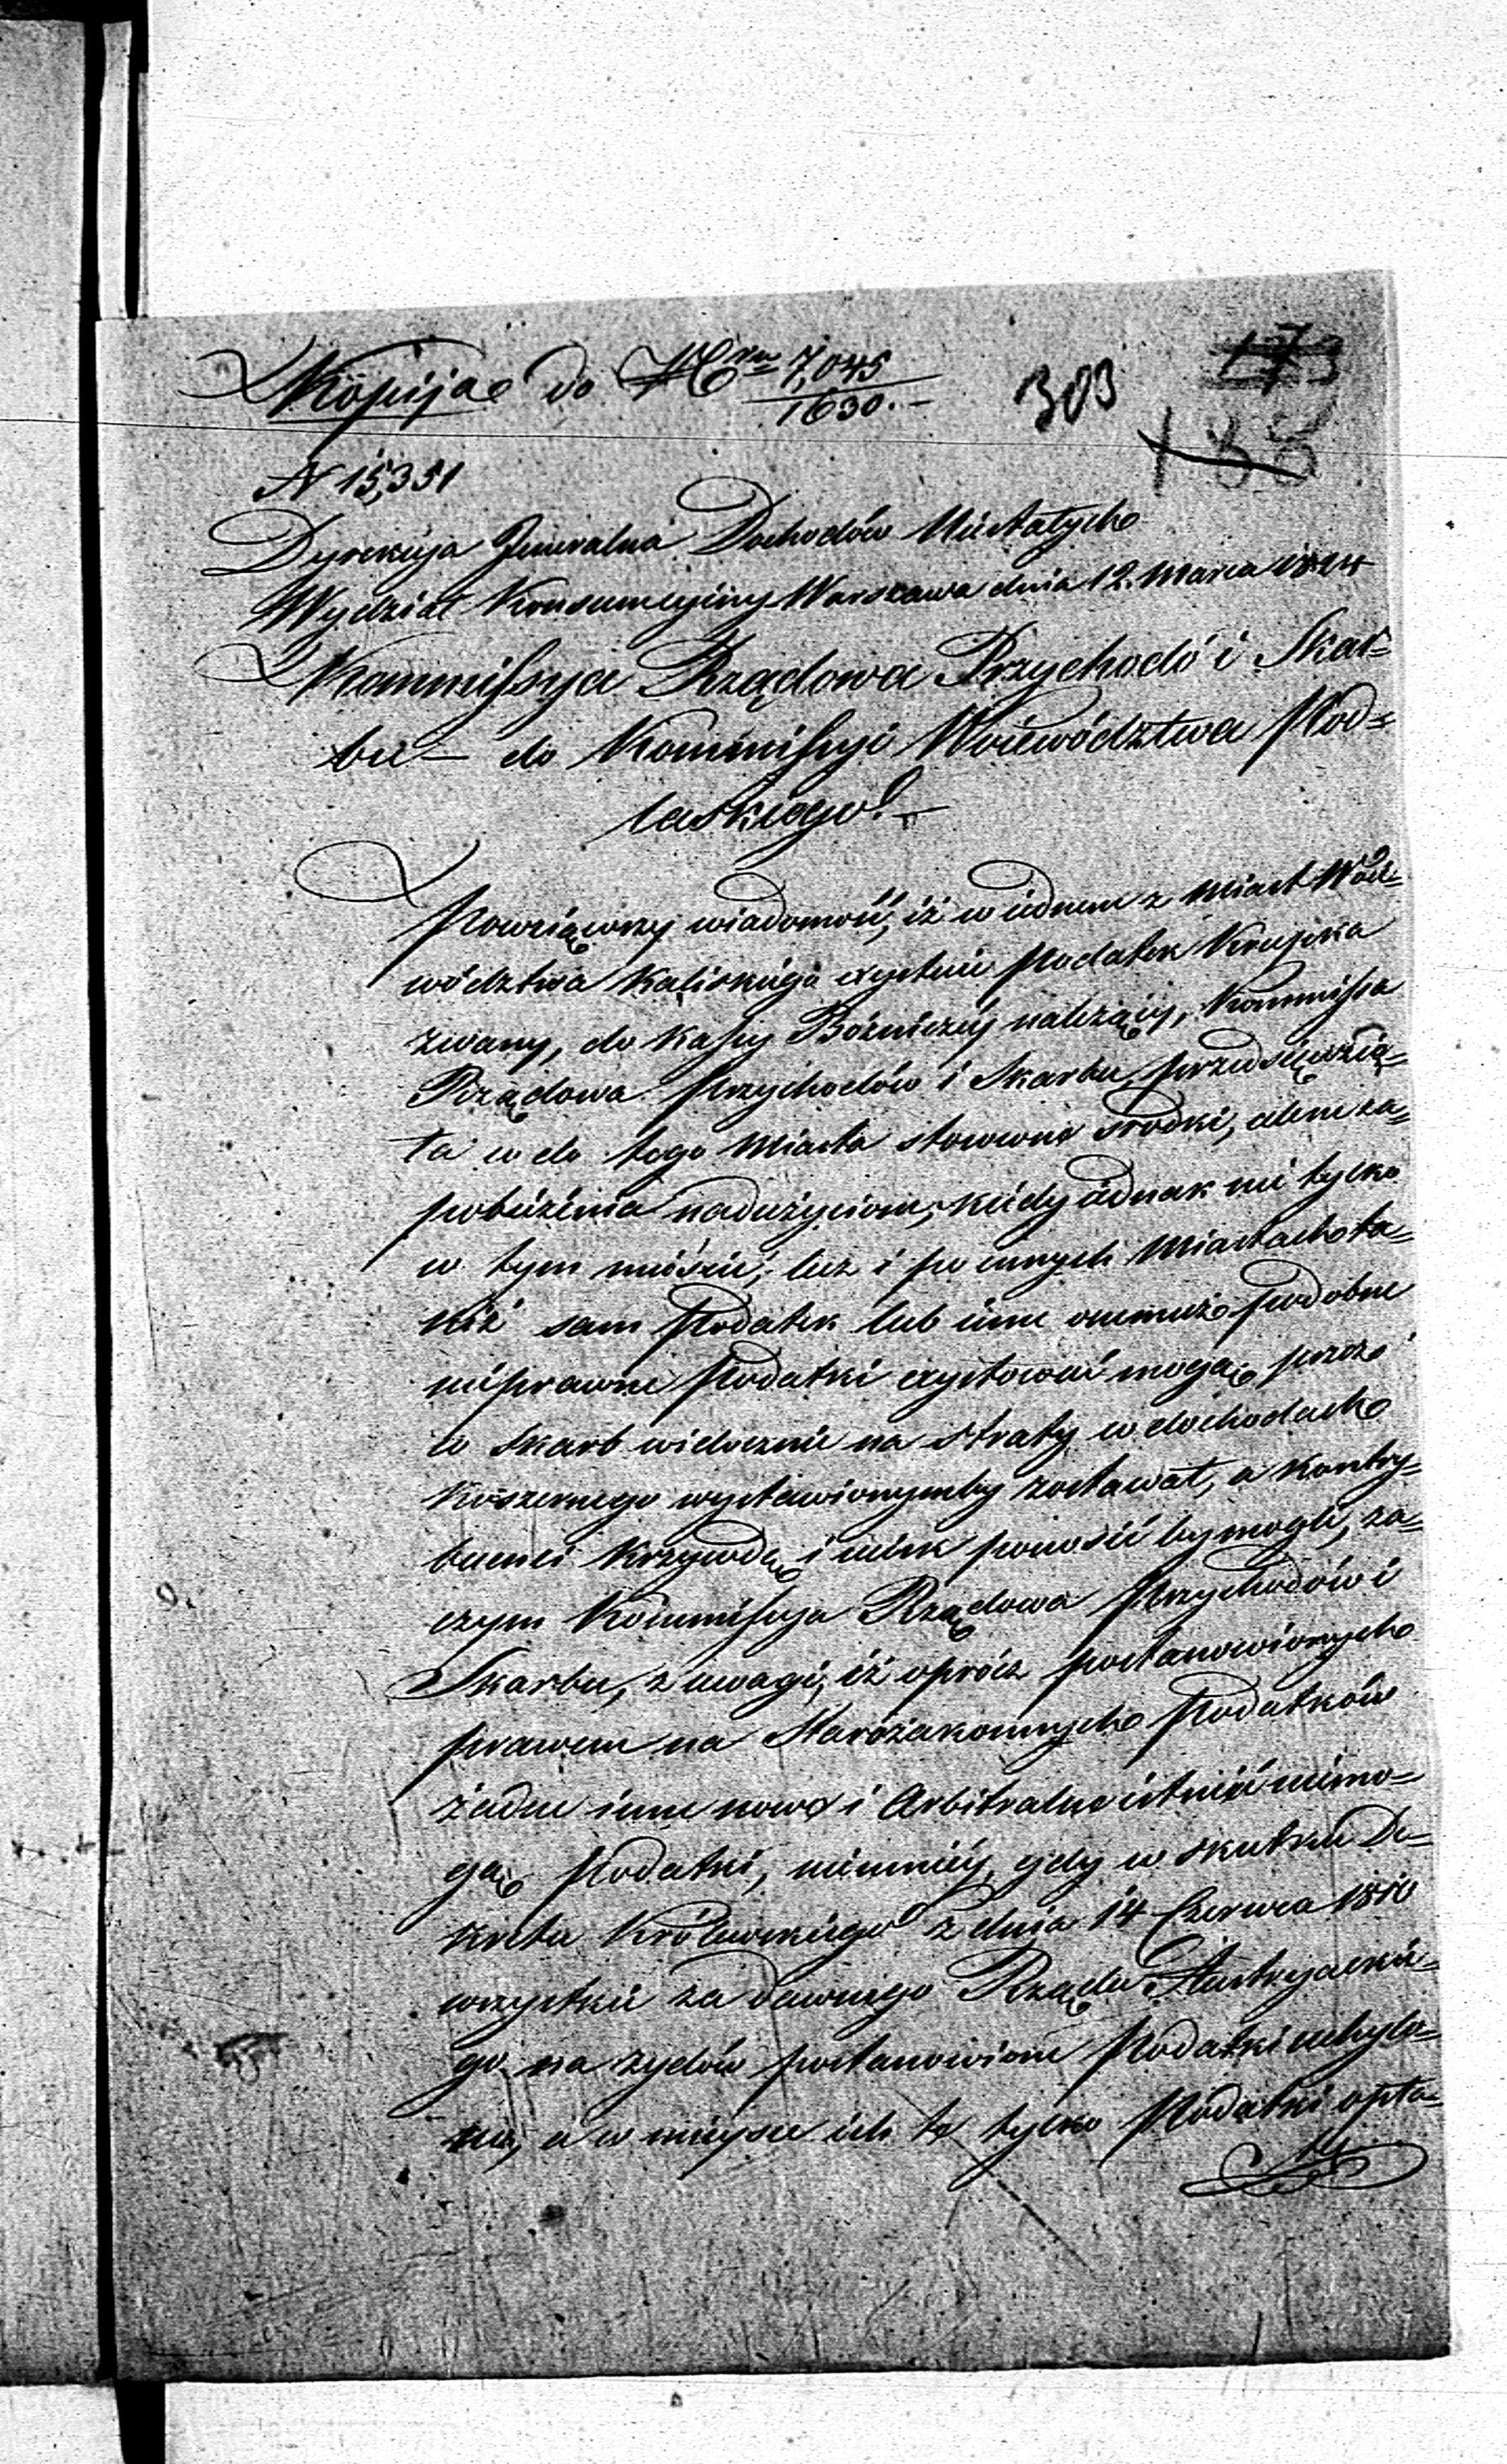 Kopija do Nru 7,045
1630.
303
173
188
N 15,351
Dyrekcya Jeneralna Dochodów Niestałych
Wydział Konsumcyiny Warszawa dnia 12. Marca 1824
Kommissya Rządowa Przychodó i Skar=
bu — do Kommissyi Woiewództwa Pod=
laskiego. —
Powziąwszy wiadomość, iż w iednem z Miast Woie=
wództwa Kaliskiego exystuie Podatek Krupka
zwany, do Kassy Bóżniczéy należący, Kommissa
Rządowa Przychodów i Skarbu przedsięwzię=
ła co do tego Miasta stosowne srodki, celem za=
pobieżenia nadużyciom; kiedy iednak nie tylko
w tym mieście, lecz i po innych Miastach ta=
kiż sam Podatek lub inne onemuż podobne
nieprawne Podatki exystować mogą, przez
co Skarb widocznie na straty w dochodach
Koszernego wystawionymby zostawał, a kontry=
buenci krzywdę i ucisk ponosić by mogli, za=
czym Kommissya Rządowa Przychodów i
Skarbu, z uwagi, iż oprócz postanowionych
prawem na Starozakonnych Podatków
żadne inne nowe i Arbitralne istnieć niemo=
gą Podatki, niemniéy, gdy w skutku De=
kretu Królewskiego z dnia 14 Czerwca 1810
wszystkie za dawnego Rządu Austryackie=
go na żydów postanowione Podatki uchylo=
ne, a w mieysce ich te tylko Podatki opła=
ty